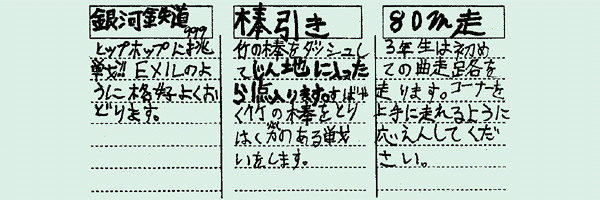 銀河鉄道
999
ヒップホップに挑
戦!! EXILのよ
うに格好よくお
どります。
棒引き
竹の棒をダッシュし
てじん地に入った
ら1点入ります。すばや
く竹の棒をとり
はく力のある戦
いをします。
80m走
3年生は初め
ての曲走路を
走ります。コーナーを
上手に走れるように
応えんしてくだ
さい。